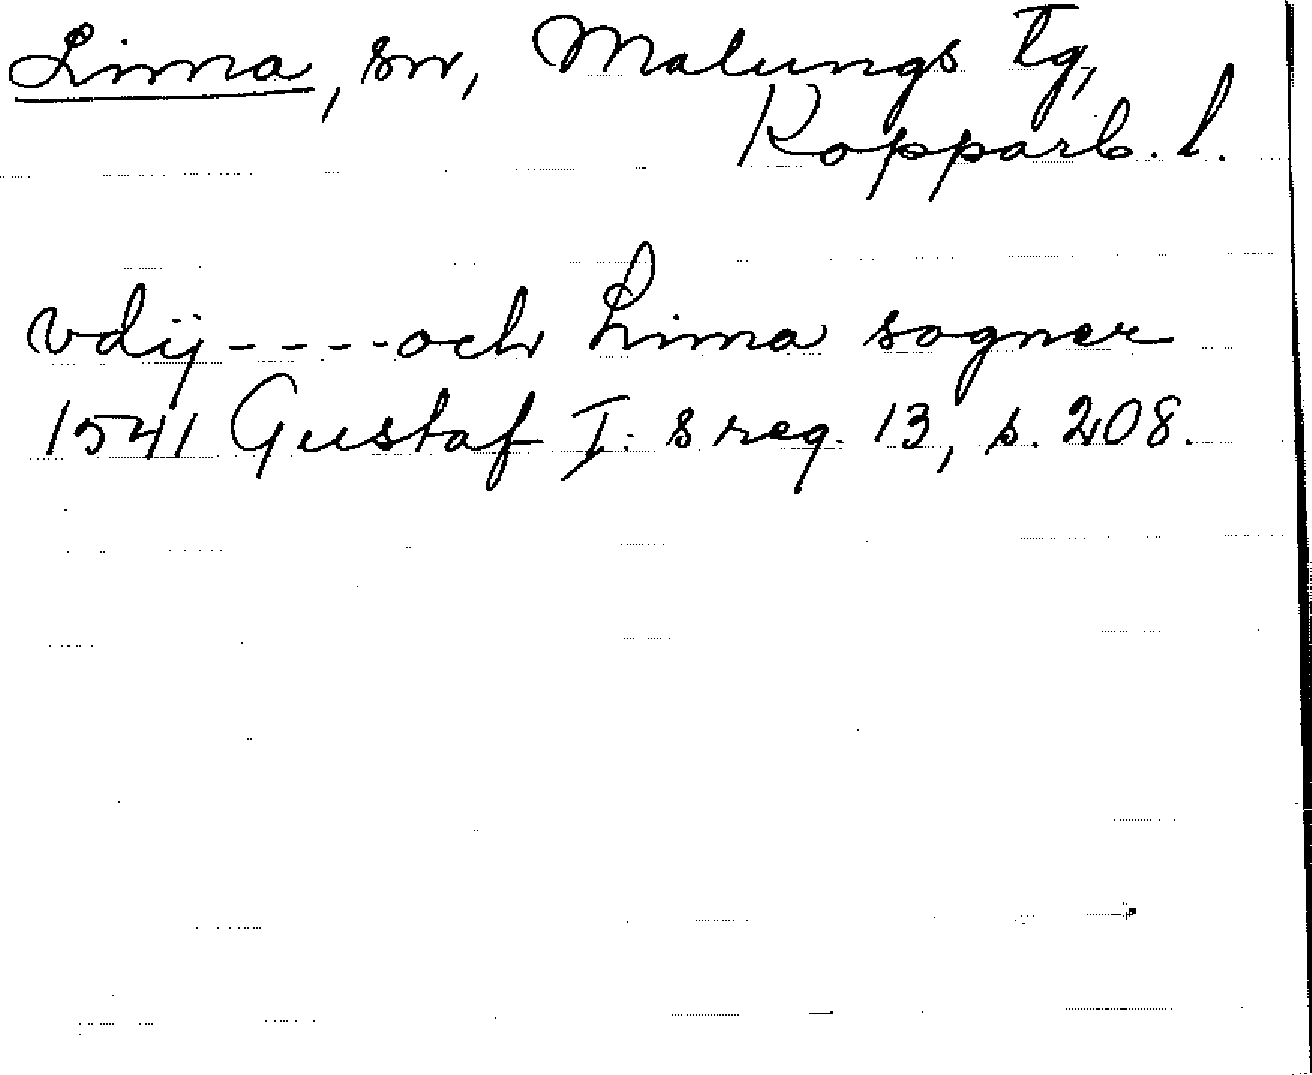 Lima, sn, Malungs tg,
Kopparb. l.
vdij----och Lima sogner
1541 Gustaf I:s reg. 13, s. 208.